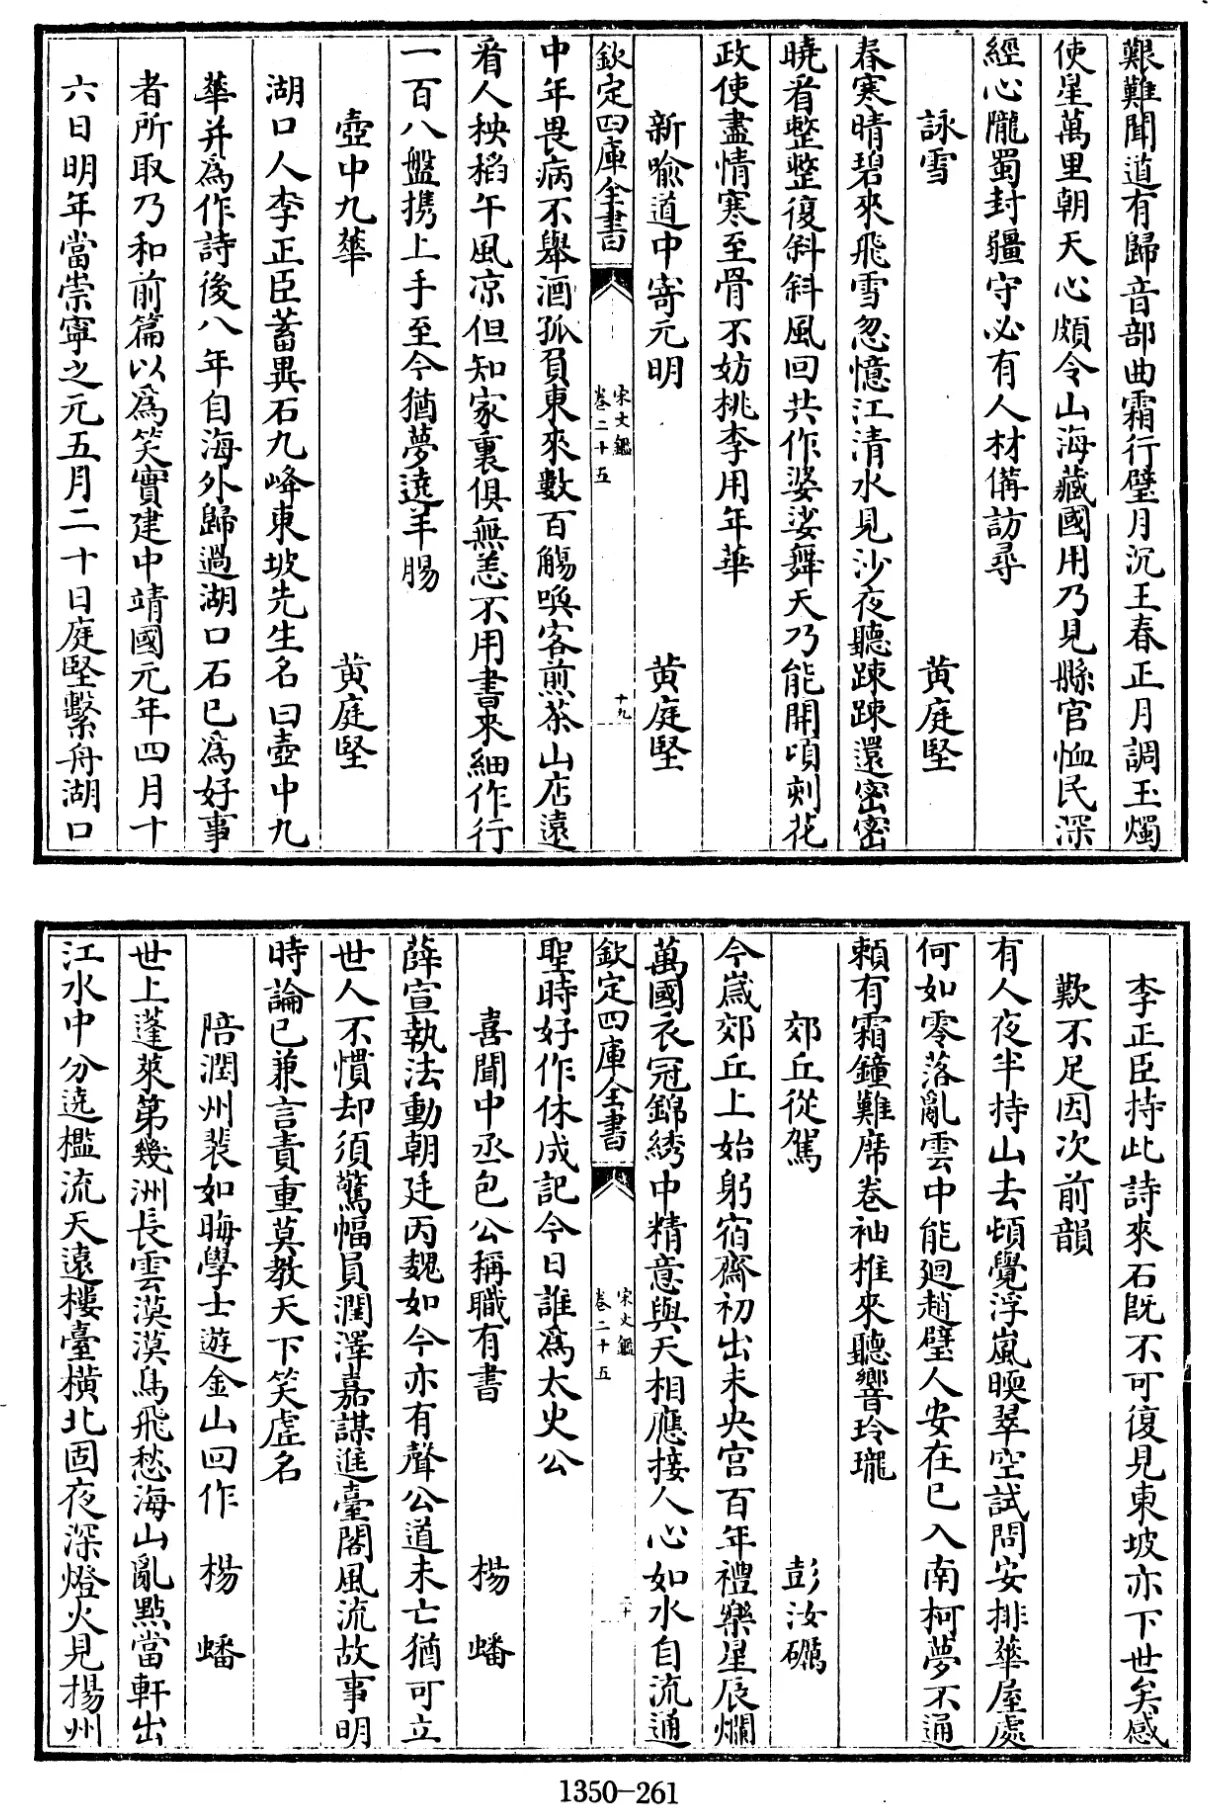 艱難聞道有歸音部曲霜行璧月沉王春正月調玉燭
使星萬里朝天心頗令山海藏國用乃見縣官恤民深
經心隴蜀封疆守必有人材備訪尋
詠雪 黄庭堅
春寒晴碧來飛雪忽憶江清水見沙夜聽踈踈還密密
曉看整整復斜斜風回共作婆娑舞天乃能開頃刻花
政使盡情寒至骨不妨桃李用年華
新喻道中寄元明 黄庭堅
欽定四庫全書 宋文鑑 卷二十五 十九
中年畏病不舉酒孤負東來數百觴喚客煎茶山店遠
看人秧稻午風凉但知家裏俱無恙不用書來細作行
一百八盤携上手至今猶夢遶羊腸
壺中九華 黄庭堅
湖口人李正臣蓄異石九峰東坡先生名曰壺中九
華并爲作詩後八年自海外歸過湖口石已爲好事
者所取乃和前篇以爲笑實建中靖國元年四月十
六日明年當崇寧之元五月二十日庭堅繫舟湖口
李正臣持此詩來石既不可復見東坡亦下世矣感
歎不足因次前韻
有人夜半持山去頓覺浮嵐暖翠空試問安排華屋處
何如零落亂雲中能廻趙璧人安在已入南柯夢不通
賴有霜鐘難席卷袖椎來聽響玲瓏
郊丘從駕 彭汝礪
今歲郊丘上始躬宿齋初出未央宫百年禮樂星辰爛
萬國衣冠錦綉中精意與天相應接人心如水自流通
欽定四庫全書 宋文鑑 卷二十五 二十
聖時好作休成記今日誰爲太史公
喜聞中丞包公稱職有書 楊蟠
薛宣執法動朝廷丙魏如今亦有聲公道未亡猶可立
世人不慣却須驚幅員潤澤嘉謀進臺閣風流故事明
時論已兼言責重莫教天下笑虚名
陪潤州裴如晦學士遊金山回作 楊蟠
世上蓬萊第幾洲長雲漠漠鳥飛愁海山亂點當軒出
江水中分遶檻流天遠樓臺橫北固夜深燈火見揚州
1350-261